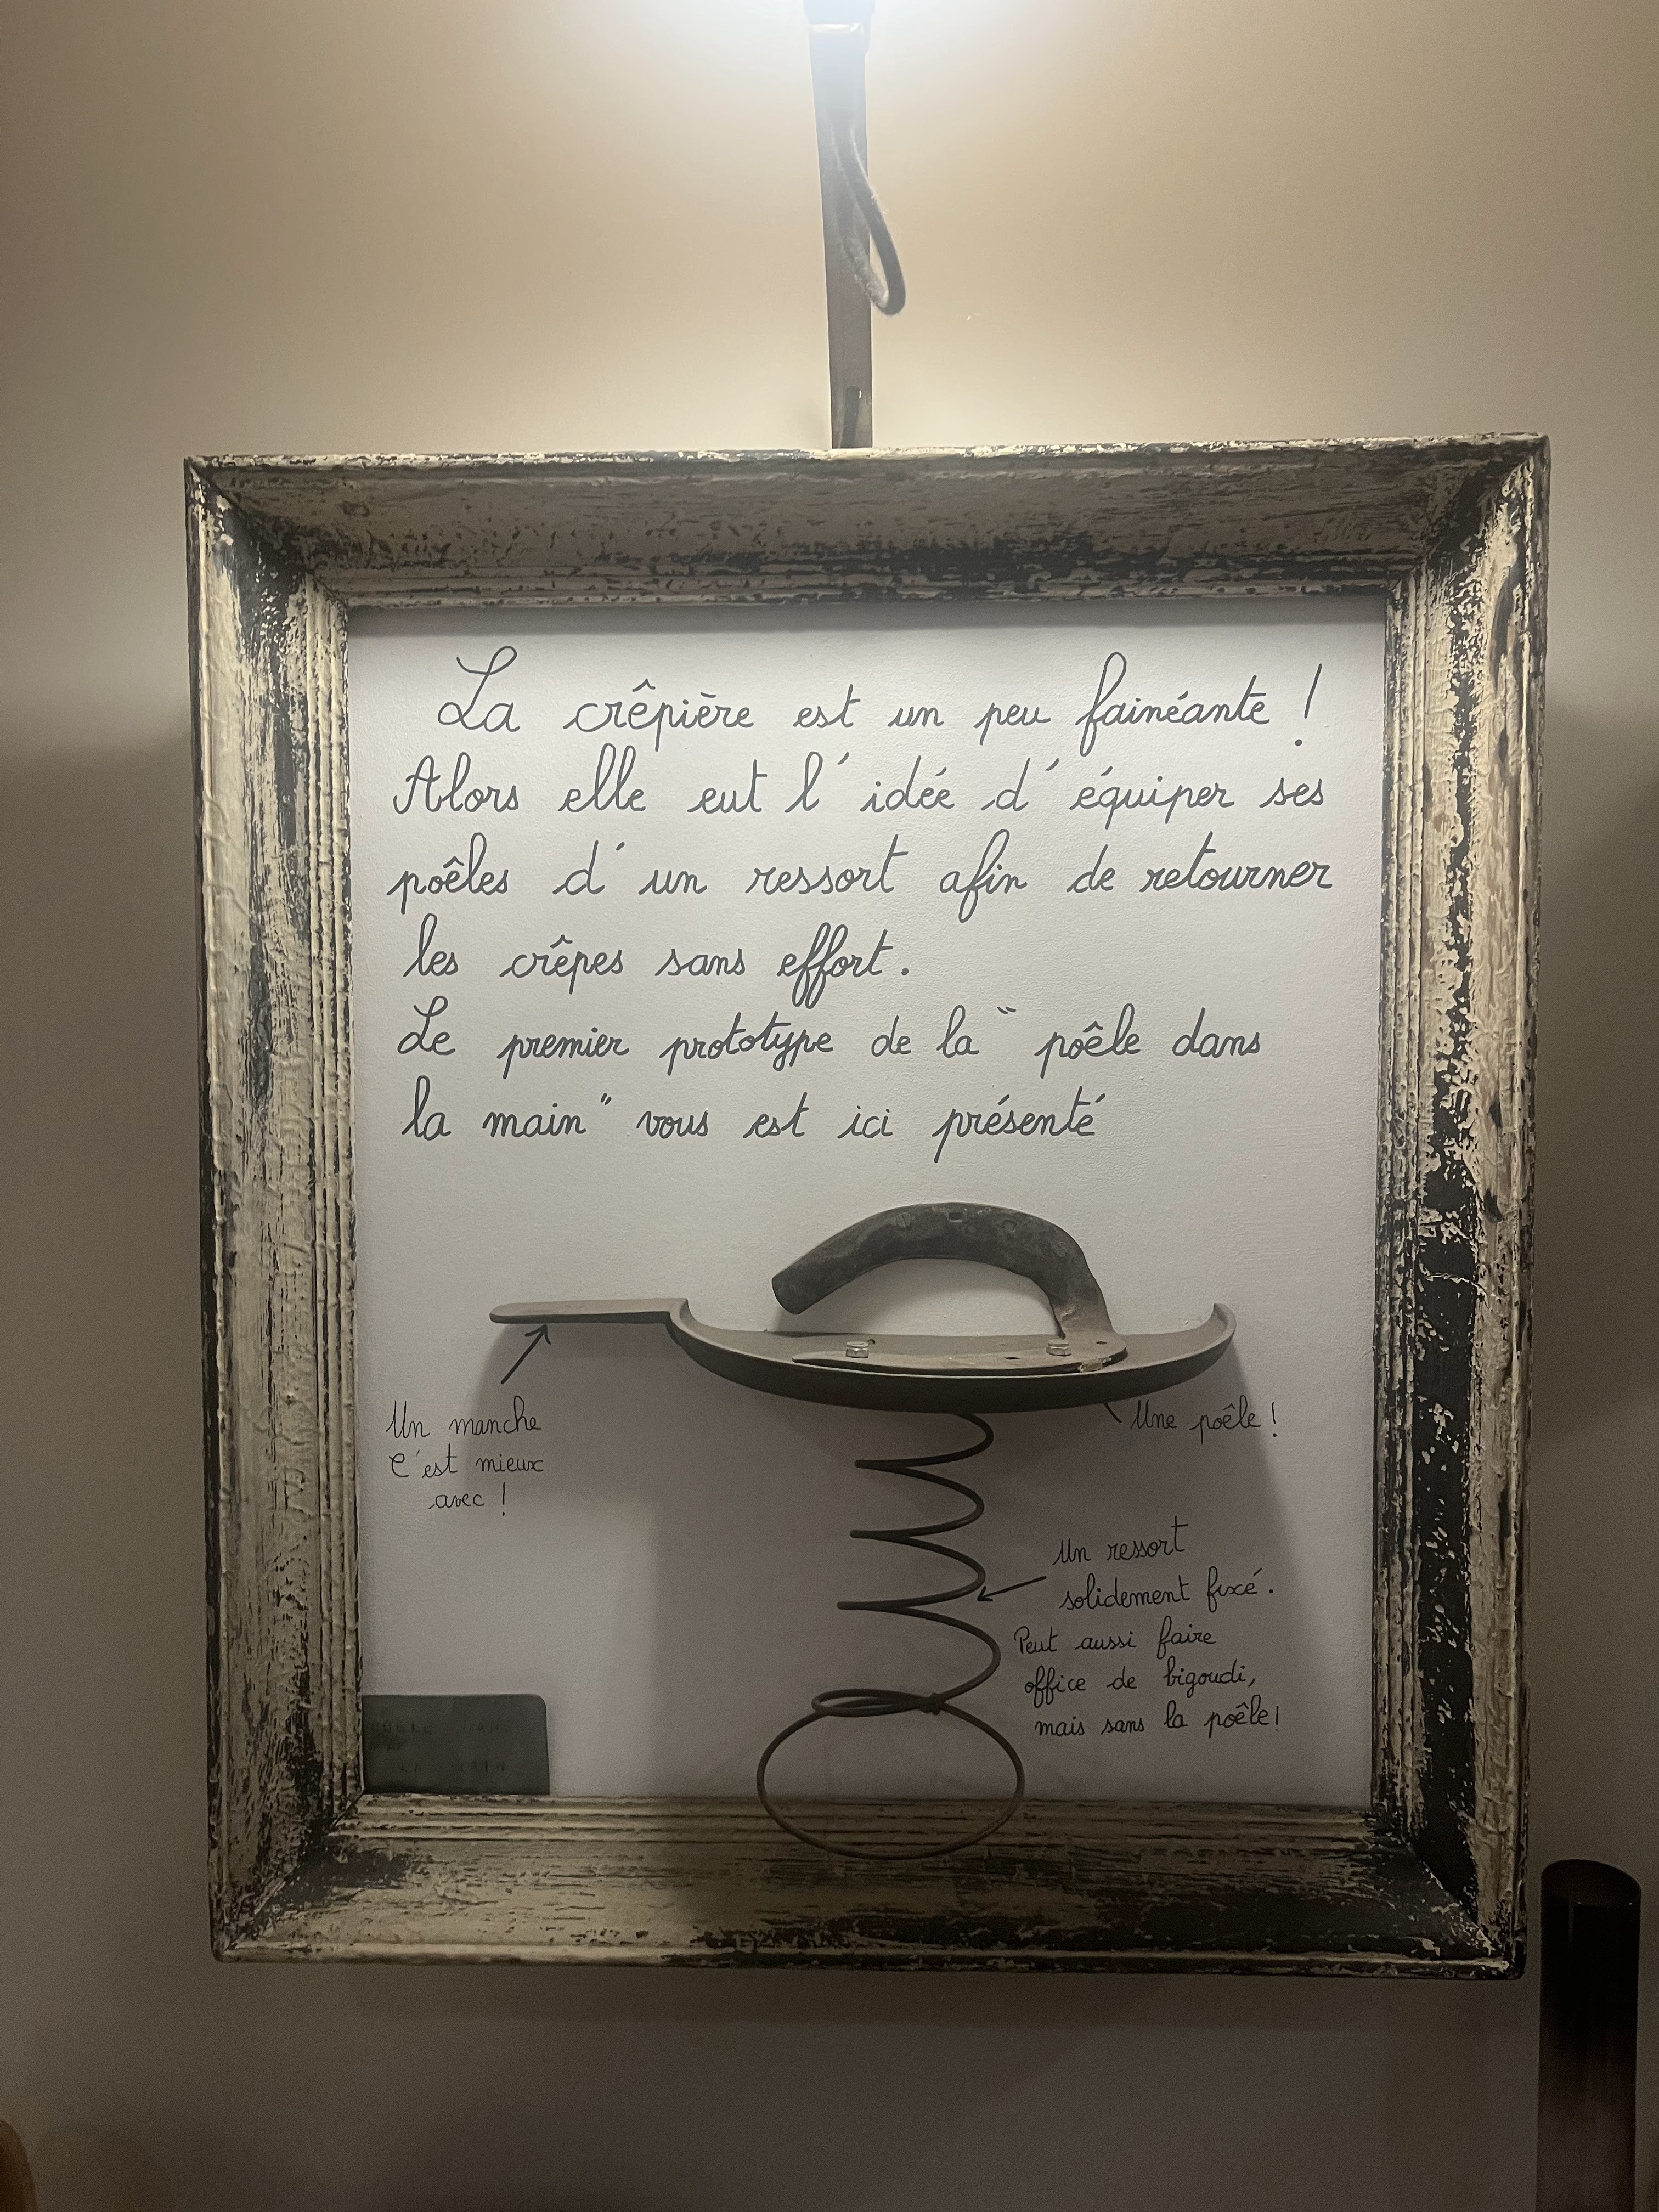 La crêpière est un peu fainéante !
Alors elle eut l'idée d'équiper ses
poêles d'un ressort afin de retourner
les crêpes sans effort.
Le premier prototype de la "poêle dans
la main" vous est ici présenté
Un manche
C'est mieux
avec !
Une poêle !
Un ressort
solidement fixé.
Peut aussi faire
office de bigoudi,
mais sans la poêle !
POÊLE DANS
LA MAIN